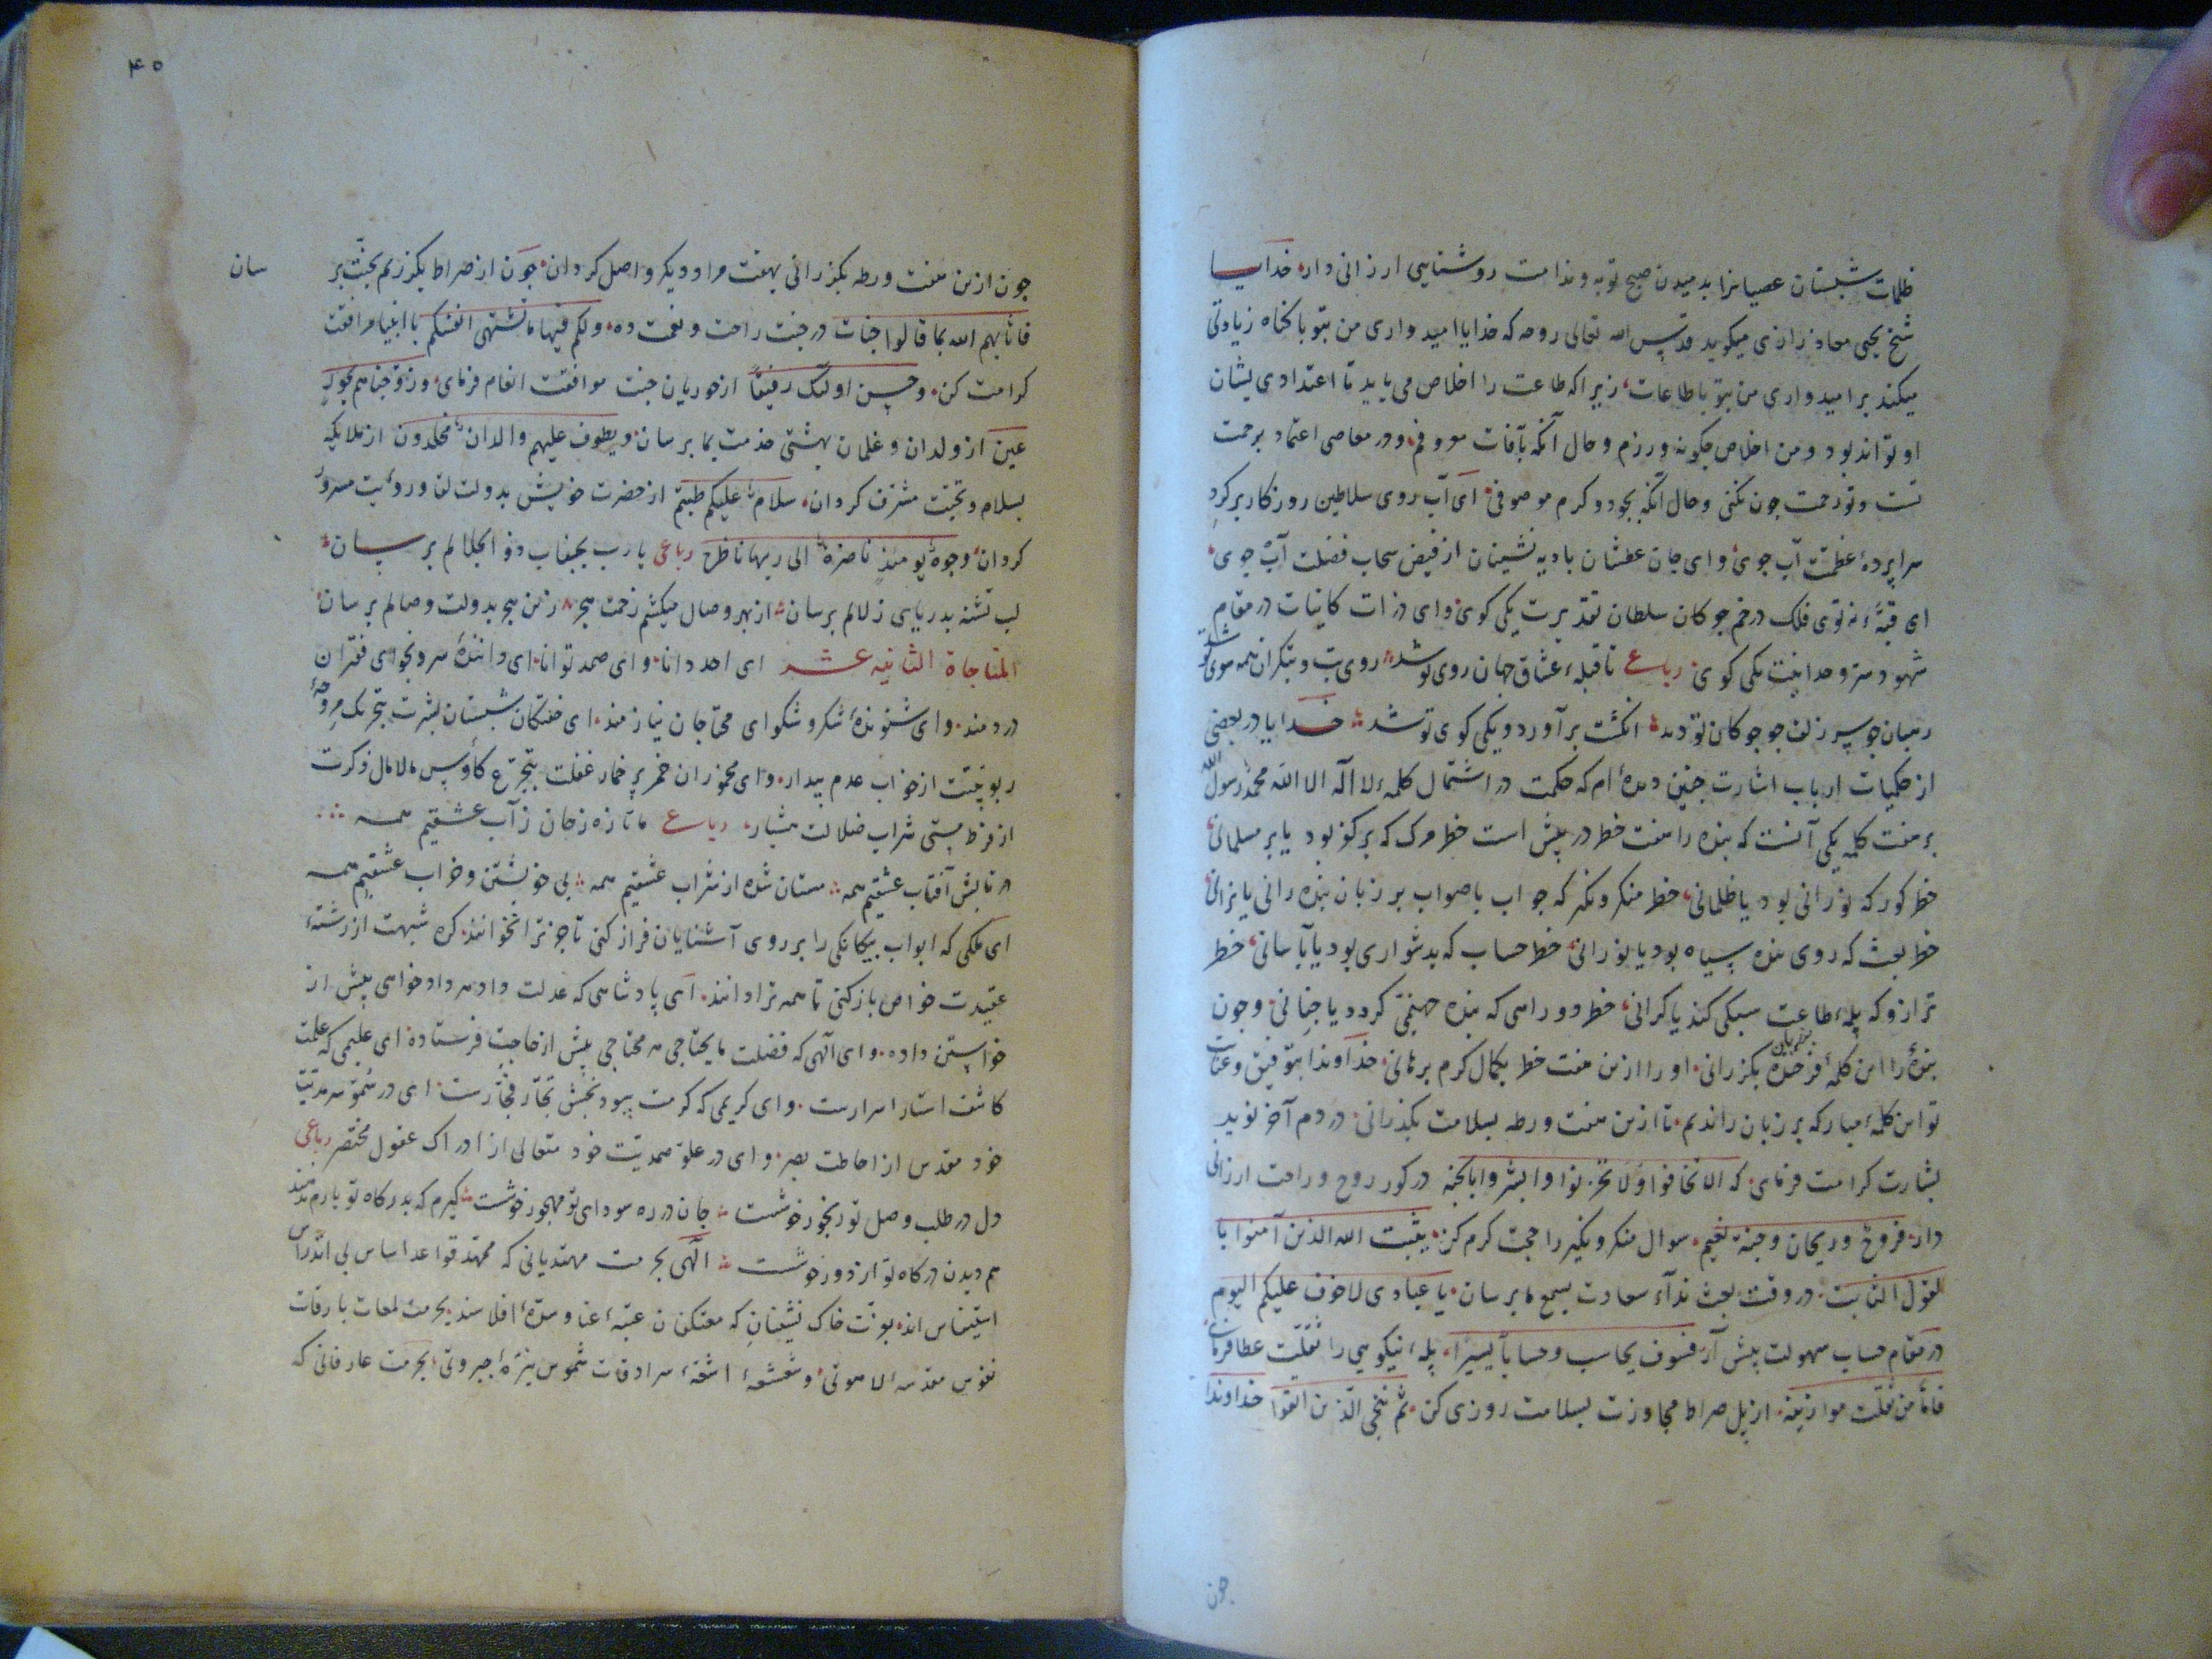 ظلمات شبستان عصیانرا بدمیدن صبح توبه و ندامت روشنایی ارزانی دار خدایا
شیخ یحیی معاذ رازی میکوید قدس الله تعالی روحه که خدایا امیدواری من بتو با کناه زیادتی
میکند بر امیدواری من بتو با طاعات زیرا که طاعت را اخلاص می باید تا اعتداد ی بشان
او تواند بود و من اخلاص چکونه ورزم و حال آنکه بآفات معروفم و در معاصی اعتماد برحمت
تست و تو رحمت چون نکنی و حال آنکه بجود و کرم موصوفی ای آب روی سلاطین روزکار بر کرد
سراپردهٔ عظمتت آب جوی و ای جان عطشان بادیه نشینان از فیض سحاب فضلت آب جوی
ای قبهٔ نه توی فلک در خم چوکان سلطان تقدیرت یکی کوی و ای ذرات کاینات در مقام
شهود سر وحدانیت یکی کوی رباعی تا قبلهٔ عشاق جهان روی تو شد روی بت و بتکران همه سوی تو شد
رهبان چو سر زلف چو چوکان تو دید انکشت برآورد و یکی کوی تو شد خدایا در بعضی
از حکمیات ارباب اشارت چنین دیدهٔ ام که حکمت در اشتمال کلمهٔ لا اله الا الله محمد رسول الله
بر هفت کلمه یکی آنست که بنده را هفت خطر در پیش است خطر مرک که بر کفر بود یا بر مسلمانی
خطر کور که نورانی بود یا ظلمانی خطر منکر و نکیر که جواب باصواب بر زبان بنده رانی یا نرانی
خطر بعث که روی بنده سیاه بود یا نورانی خطر حساب که بدشواری بود یا بآسانی خطر
ترازو که پلهٔ طاعت سبکی کند یا کرانی خطر دو راهی که بنده جهنمی کردد یا جنانی و چون
بندهٔ را این کلمهٔ فرخنده بر زبان بکزرانی او را ازین هفت خطر بکمال کرم برهانی خداوندا بتوفیق و عنایت
تو این کلمهٔ مبارکه بر زبان راندیم تا ازین هفت ورطه بسلامت بکذرانی در دم آخر نوید
بشارت کرامت فرمای که الا تخافوا و لا تحزنوا و ابشروا بالجنه در کور روح و راحت ارزانی
دار فروح و ریحان و جنة نعیم سوال منکر و نکیر را حجت کرم کن یثبت الله الذین آمنوا با
لقول الثابت در وقت بعث نداء سعادت بسمع ما برسان یا عبادی لا خوف علیکم الیوم
در مقام حساب سهولت پیش آر فسوف یحاسب و حسابا یسیرا پلهٔ نیکویی را ثقلت عطا فرمای
فاما من ثقلت موازینه از پل صراط مجاوزت بسلامت روزی کن ثم ننجی الذین اتقوا خداوندا
چون
۴۵
چون ازین هفت ورطه بکزرانی بهفت مراد دیکر واصل کردان چون از صراط بکزریم بجنت بر سان
فاثابهم الله بما قالوا جنات در جنت راحت و نعمت ده ولکم فیها ما تشتهی انفسکم با انبیا مرافقت
کرامت کن و حسن اولئک رفیقا از حوریان جنت موافقت انعام فرمای و زوجناهم بحور
عین از ولدان و غلمان بهشتی خدمت بما برسان و یطوف علیهم ولدان مخلدون از ملایکه
بسلام و تحیت مشرف کردان سلام علیکم طبتم از حضرت خویش بدولت لقا و رؤیت مسرور
کردان وجوه یومئذ ناضرة الی ربها ناظرة رباعی یا رب بجناب ذو الجلالم برسان
لب تشنه بدریای زلالم برسان از بهر وصال میکشم زحمت هجر زین هجر بدولت وصالم برسان
المناجاة الثانیه عشر ای احد دانا و ای صمد توانا ای دانندهٔ سر و نجوای فقیران
دردمند و ای شنوندهٔ شکر و شکوای محتاجان نیازمند ای خفتکان شبستان بشریت بتحریک مروحهٔ
ربوبیتت از خواب عدم بیدار و ای مخموران خمر پر خمار غفلت بتجرع کأوس مالامال ذکرت
از فرط مستی شراب ضلالت هشیار رباعی ما تازه زجان ز آب عشقیم همه
در تابش آفتاب عشقیم همه مستان شده از شراب عشقیم همه بی خویشتن و خراب عشقیم همه
ای ملکی که ابواب بیکانکی را بر روی آشنایان فراز کنی تا جز ترا نخوانند کره شبهت از رشتهٔ
عقیدت خواص باز کنی تا همه ترا دانند ای پادشاهی که عدلت داد هر دادخواهی پیش از
خواستن داده و ای آلهی که فضلت ما یحتاج هر محتاجی پیش از حاجت فرستاده ای علیمی که علمت
کاشف استار اسرارست و ای کریمی که کرمت بیبود بخش تجار فجارست ای در سمو سرمدیت
خود مقدس از احاطت بصر و ای در علو صمدیت خود متعالی از ادراک عقول مختصر رباعی
دل در طلب وصل تو رنجور خوشست جان در ره سودای تو مهجور خوشست کیرم که بدرکاه تو بارم ندهند
هم دیدن درکاه تو از دور خوشست الهی بحرمت مهتدیانی که ممهد قواعد اساس بی اندراس
استیناس اند بعزت خاک نشینان که معتکفان عتبهٔ غنا و سدهٔ افلاسند بحرمت لمعات بارقات
نفوس مقدسهٔ لاهوتی و شعشعهٔ اشعهٔ سرادقات شموس نیرهٔ جبروتی بحرمت عارفانی که